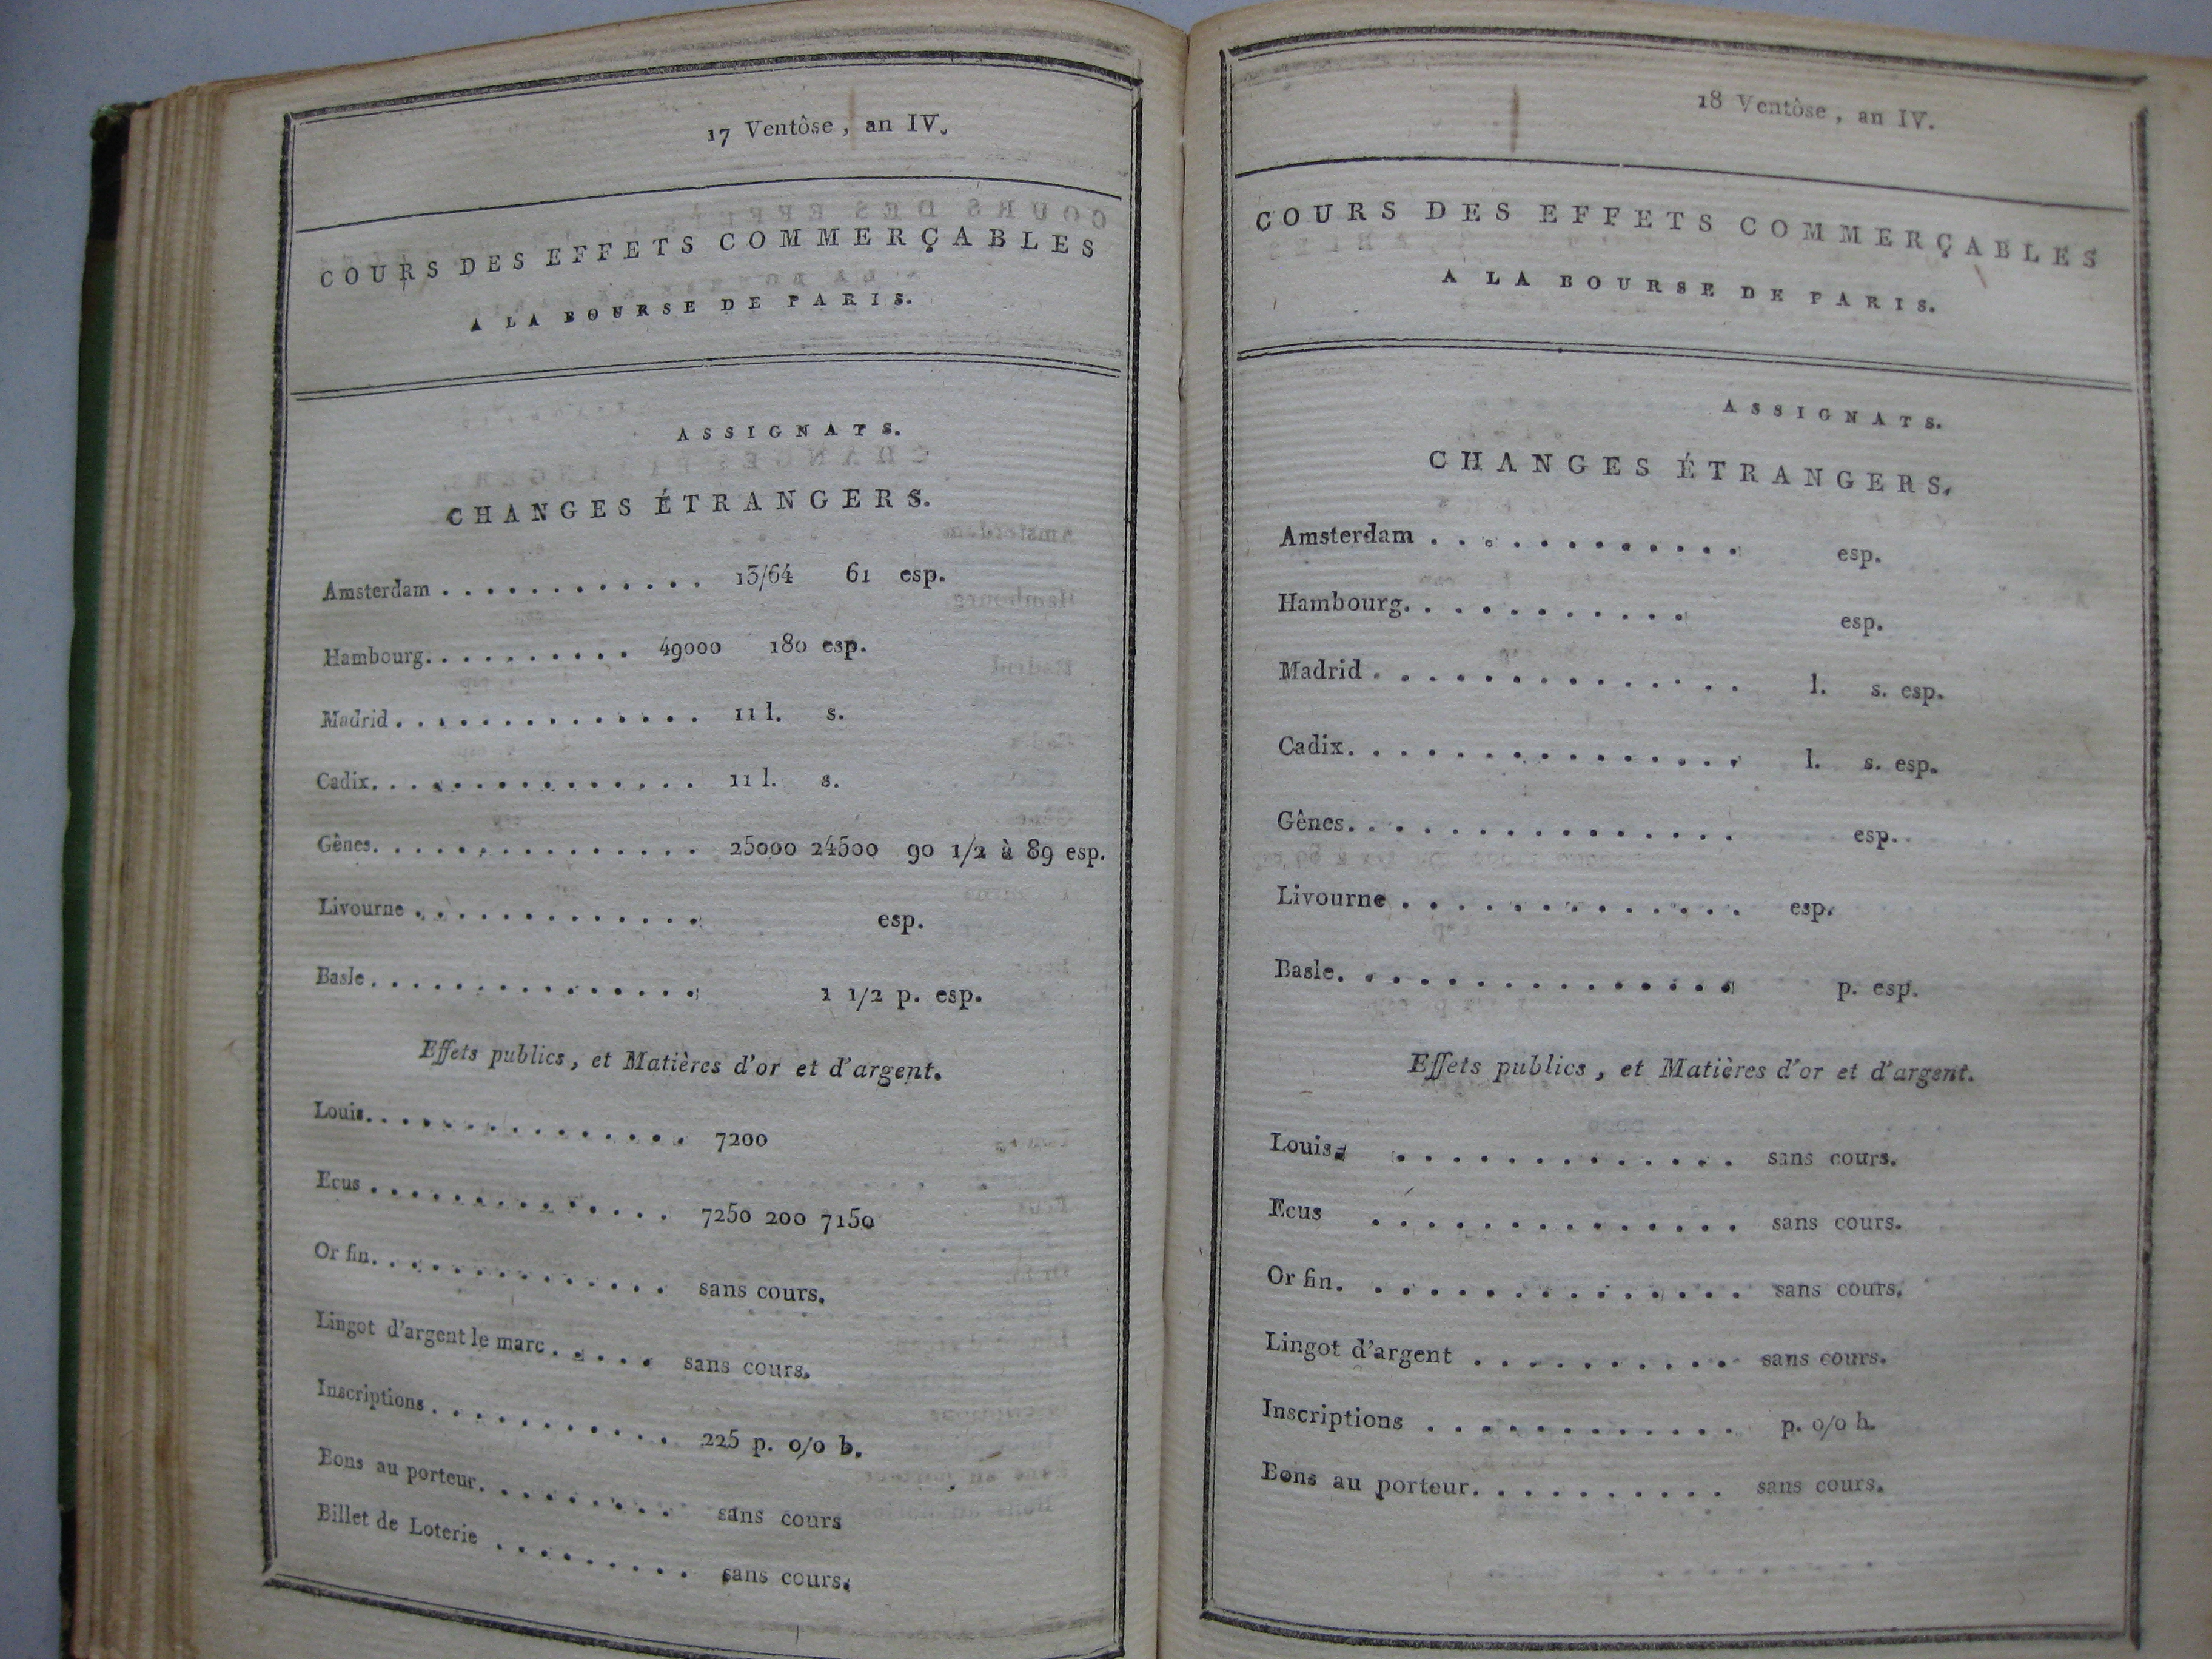 17 Ventôse, an IV.
COURS DES EFFETS COMMERÇABLES
A LA BOURSE DE PARIS.
ASSIGNATS.
CHANGES ÉTRANGERS.
Amsterdam . . . . . . . . . . . . 13/64 61 esp.
Hambourg. . . . . . . . . . 49000 180 esp.
Madrid . . . . . . . . . . . . . . 11 l. s.
Cadix. . . . . . . . . . . . . . . 11 l. s.
Gênes. . . . . . . . . . . . . . . 25000 24500 90 1/2 à 89 esp.
Livourne . . . . . . . . . . . . . esp.
Basle . . . . . . . . . . . . . . . 1 1/2 p. esp.
Effets publics, et Matières d'or et d'argent.
Louis. . . . . . . . . . . . . . . 7200
Ecus . . . . . . . . . . . . . . 7250 200 7150
Or fin. . . . . . . . . . . . . . sans cours.
Lingot d'argent le marc . . . . . sans cours.
Inscriptions . . . . . . . . . . . 225 p. o/o b.
Bons au porteur. . . . . . . . . sans cours
Billet de Loterie . . . . . . . . . sans cours.
18 Ventôse, an IV.
COURS DES EFFETS COMMERÇABLES
A LA BOURSE DE PARIS.
ASSIGNATS.
CHANGES ÉTRANGERS.
Amsterdam . . . . . . . . . . . . esp.
Hambourg. . . . . . . . . . . esp.
Madrid . . . . . . . . . . . . . . l. s. esp.
Cadix. . . . . . . . . . . . . . . l. s. esp.
Gênes. . . . . . . . . . . . . . . esp.
Livourne . . . . . . . . . . . . . esp.
Basle. . . . . . . . . . . . . . . p. esp.
Effets publics, et Matières d'or et d'argent.
Louis. . . . . . . . . . . . . . sans cours.
Ecus . . . . . . . . . . . . . . sans cours.
Or fin. . . . . . . . . . . . . . . sans cours.
Lingot d'argent . . . . . . . . . . sans cours.
Inscriptions . . . . . . . . . . . . p. o/o b.
Bons au porteur. . . . . . . . . . sans cours.